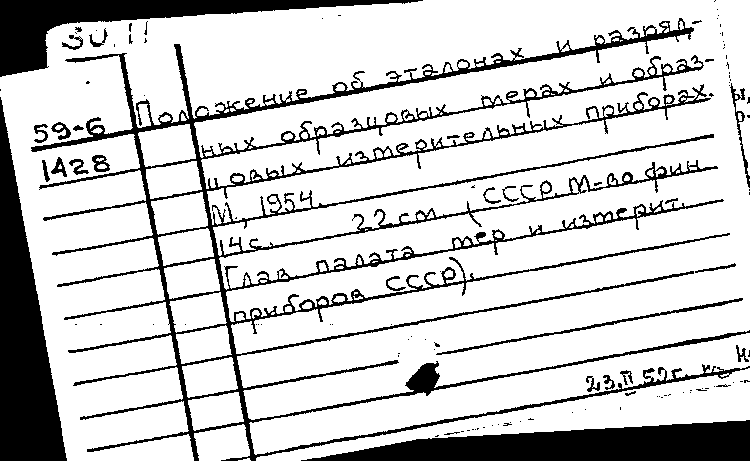 59-6
1428
Положение об эталонах и разряд-
ных образцовых мерах и образ-
цовых измерительных приборах.
М., 1954.
14с. 22 см. (СССР. М-во фин
Глав. палата мер и измерит.
приборов СССР).
23.II 59 г.